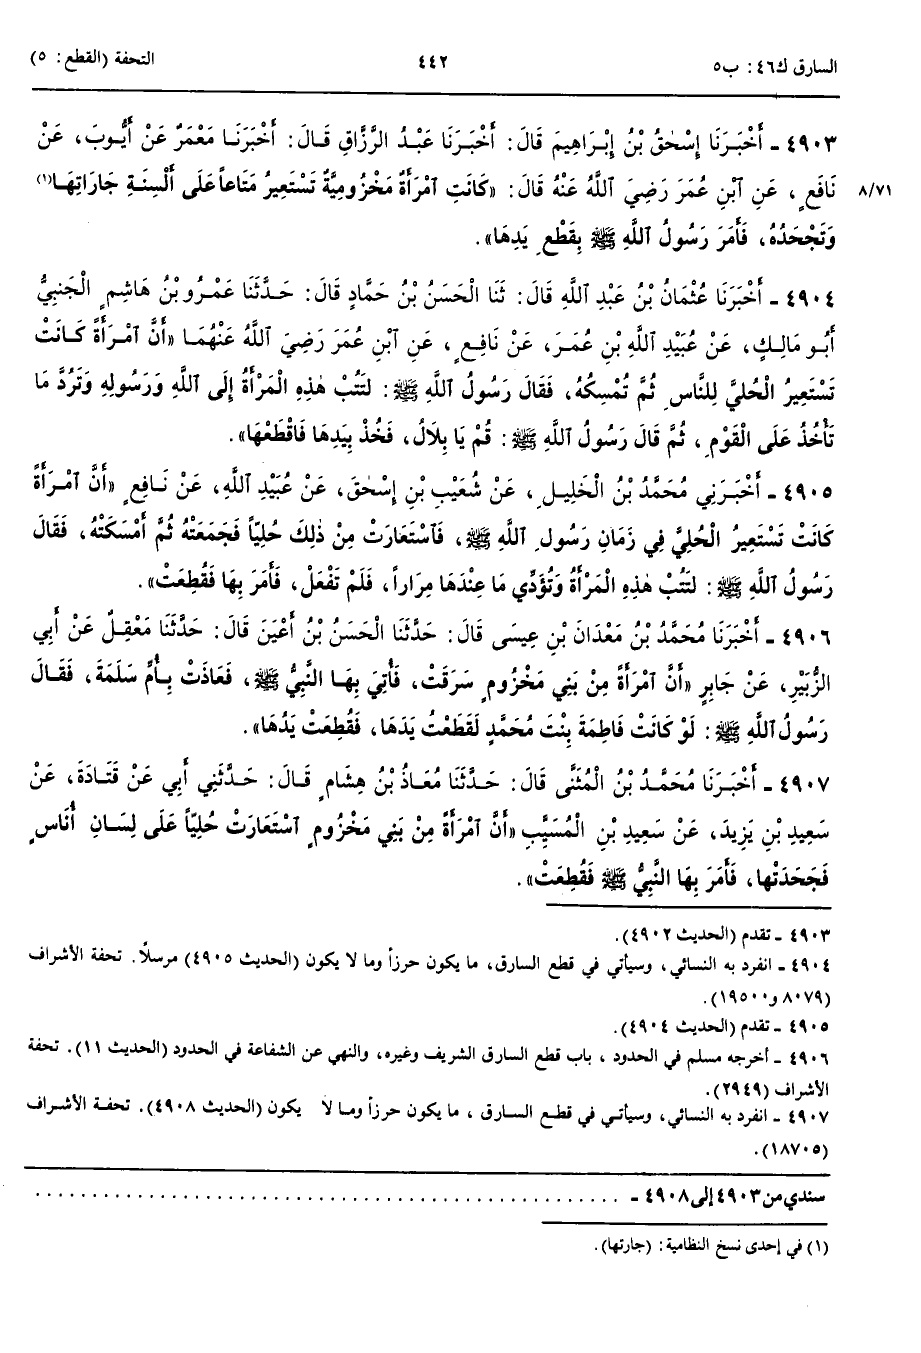 السارق ك٤٦: ب٥ ٤٤٢ التحفة (القطع: ٥)
٤٩٠٣ ـ أَخْبَرَنَا إِسْحٰقُ بْنُ إِبْرَاهِيمَ قَالَ: أَخْبَرَنَا عَبْدُ الرَّزَّاقِ قَالَ: أَخْبَرَنَا مَعْمَرٌ عَنْ أَيُّوبَ، عَنْ
٨/٧١ نَافِعٍ، عَنِ ٱبْنِ عُمَرَ رَضِيَ ٱللَّهُ عَنْهُ قَالَ: «كَانَتِ ٱمْرَأَةٌ مَخْزُومِيَّةٌ تَسْتَعِيرُ مَتَاعاً عَلَى أَلْسِنَةِ جَارَاتِهَا(١)
وَتَجْحَدُهُ، فَأَمَرَ رَسُولُ ٱللَّهِ ﷺ بِقَطْعِ يَدِهَا».
٤٩٠٤ ـ أَخْبَرَنَا عُثْمَانُ بْنُ عَبْدِ ٱللَّهِ قَالَ: ثَنَا الْحَسَنُ بْنُ حَمَّادٍ قَالَ: حَدَّثَنَا عَمْرُو بْنُ هَاشِمٍ الْجَنْبِيُّ
أَبُو مَالِكٍ، عَنْ عُبَيْدِ ٱللَّهِ بْنِ عُمَرَ، عَنْ نَافِعٍ، عَنِ ٱبْنِ عُمَرَ رَضِيَ ٱللَّهُ عَنْهُمَا «أَنَّ ٱمْرَأَةً كَانَتْ
تَسْتَعِيرُ الْحُلِيَّ لِلنَّاسِ ثُمَّ تُمْسِكُهُ، فَقَالَ رَسُولُ ٱللَّهِ ﷺ: لِتَتُبْ هٰذِهِ الْمَرْأَةُ إِلَى ٱللَّهِ وَرَسُولِهِ وَتَرُدَّ مَا
تَأْخُذُ عَلَى الْقَوْمِ، ثُمَّ قَالَ رَسُولُ ٱللَّهِ ﷺ: قُمْ يَا بِلَالُ، فَخُذْ بِيَدِهَا فَاقْطَعْهَا».
٤٩٠٥ ـ أَخْبَرَنِي مُحَمَّدُ بْنُ الْخَلِيلِ، عَنْ شُعَيْبِ بْنِ إِسْحٰقَ، عَنْ عُبَيْدِ ٱللَّهِ، عَنْ نَافِعٍ «أَنَّ ٱمْرَأَةً
كَانَتْ تَسْتَعِيرُ الْحُلِيَّ فِي زَمَانِ رَسُولِ ٱللَّهِ ﷺ، فَٱسْتَعَارَتْ مِنْ ذٰلِكَ حُلِيّاً فَجَمَعَتْهُ ثُمَّ أَمْسَكَتْهُ، فَقَالَ
رَسُولُ ٱللَّهِ ﷺ: لِتَتُبْ هٰذِهِ الْمَرْأَةُ وَتُؤَدِّي مَا عِنْدَهَا مِرَاراً، فَلَمْ تَفْعَلْ، فَأَمَرَ بِهَا فَقُطِعَتْ».
٤٩٠٦ ـ أَخْبَرَنَا مُحَمَّدُ بْنُ مَعْدَانَ بْنِ عِيسَى قَالَ: حَدَّثَنَا الْحَسَنُ بْنُ أَعْيَنَ قَالَ: حَدَّثَنَا مَعْقِلٌ عَنْ أَبِي
الزُّبَيْرِ، عَنْ جَابِرٍ «أَنَّ ٱمْرَأَةً مِنْ بَنِي مَخْزُومٍ سَرَقَتْ، فَأُتِيَ بِهَا النَّبِيُّ ﷺ، فَعَاذَتْ بِأُمِّ سَلَمَةَ، فَقَالَ
رَسُولُ ٱللَّهِ ﷺ: لَوْ كَانَتْ فَاطِمَةَ بِنْتَ مُحَمَّدٍ لَقَطَعْتُ يَدَهَا، فَقُطِعَتْ يَدُهَا».
٤٩٠٧ ـ أَخْبَرَنَا مُحَمَّدُ بْنُ الْمُثَنَّى قَالَ: حَدَّثَنَا مُعَاذُ بْنُ هِشَامٍ قَالَ: حَدَّثَنِي أَبِي عَنْ قَتَادَةَ، عَنْ
سَعِيدِ بْنِ يَزِيدَ، عَنْ سَعِيدِ بْنِ الْمُسَيَّبِ «أَنَّ ٱمْرَأَةً مِنْ بَنِي مَخْزُومٍ ٱسْتَعَارَتْ حُلِيّاً عَلَى لِسَانِ أُنَاسٍ
فَجَحَدَتْها، فَأَمَرَ بِهَا النَّبِيُّ ﷺ فَقُطِعَتْ».
٤٩٠٣ ـ تقدم (الحديث ٤٩٠٢).
٤٩٠٤ ـ انفرد به النسائي، وسيأتي في قطع السارق، ما يكون حرزاً وما لا يكون (الحديث ٤٩٠٥) مرسلاً. تحفة الأشراف
(٨٠٧٩ و١٩٥٠٠).
٤٩٠٥ ـ تقدم (الحديث ٤٩٠٤).
٤٩٠٦ ـ أخرجه مسلم في الحدود، باب قطع السارق الشريف وغيره، والنهي عن الشفاعة في الحدود (الحديث ١١). تحفة
الأشراف (٢٩٤٩).
٤٩٠٧ ـ انفرد به النسائي، وسيأتي في قطع السارق، ما يكون حرزاً وما لا يكون (الحديث ٤٩٠٨). تحفة الأشراف
(١٨٧٠٥).
سندي من ٤٩٠٣ إلى ٤٩٠٨ ـ ................................................
(١) في إحدى نسخ النظامية: (جارتها).